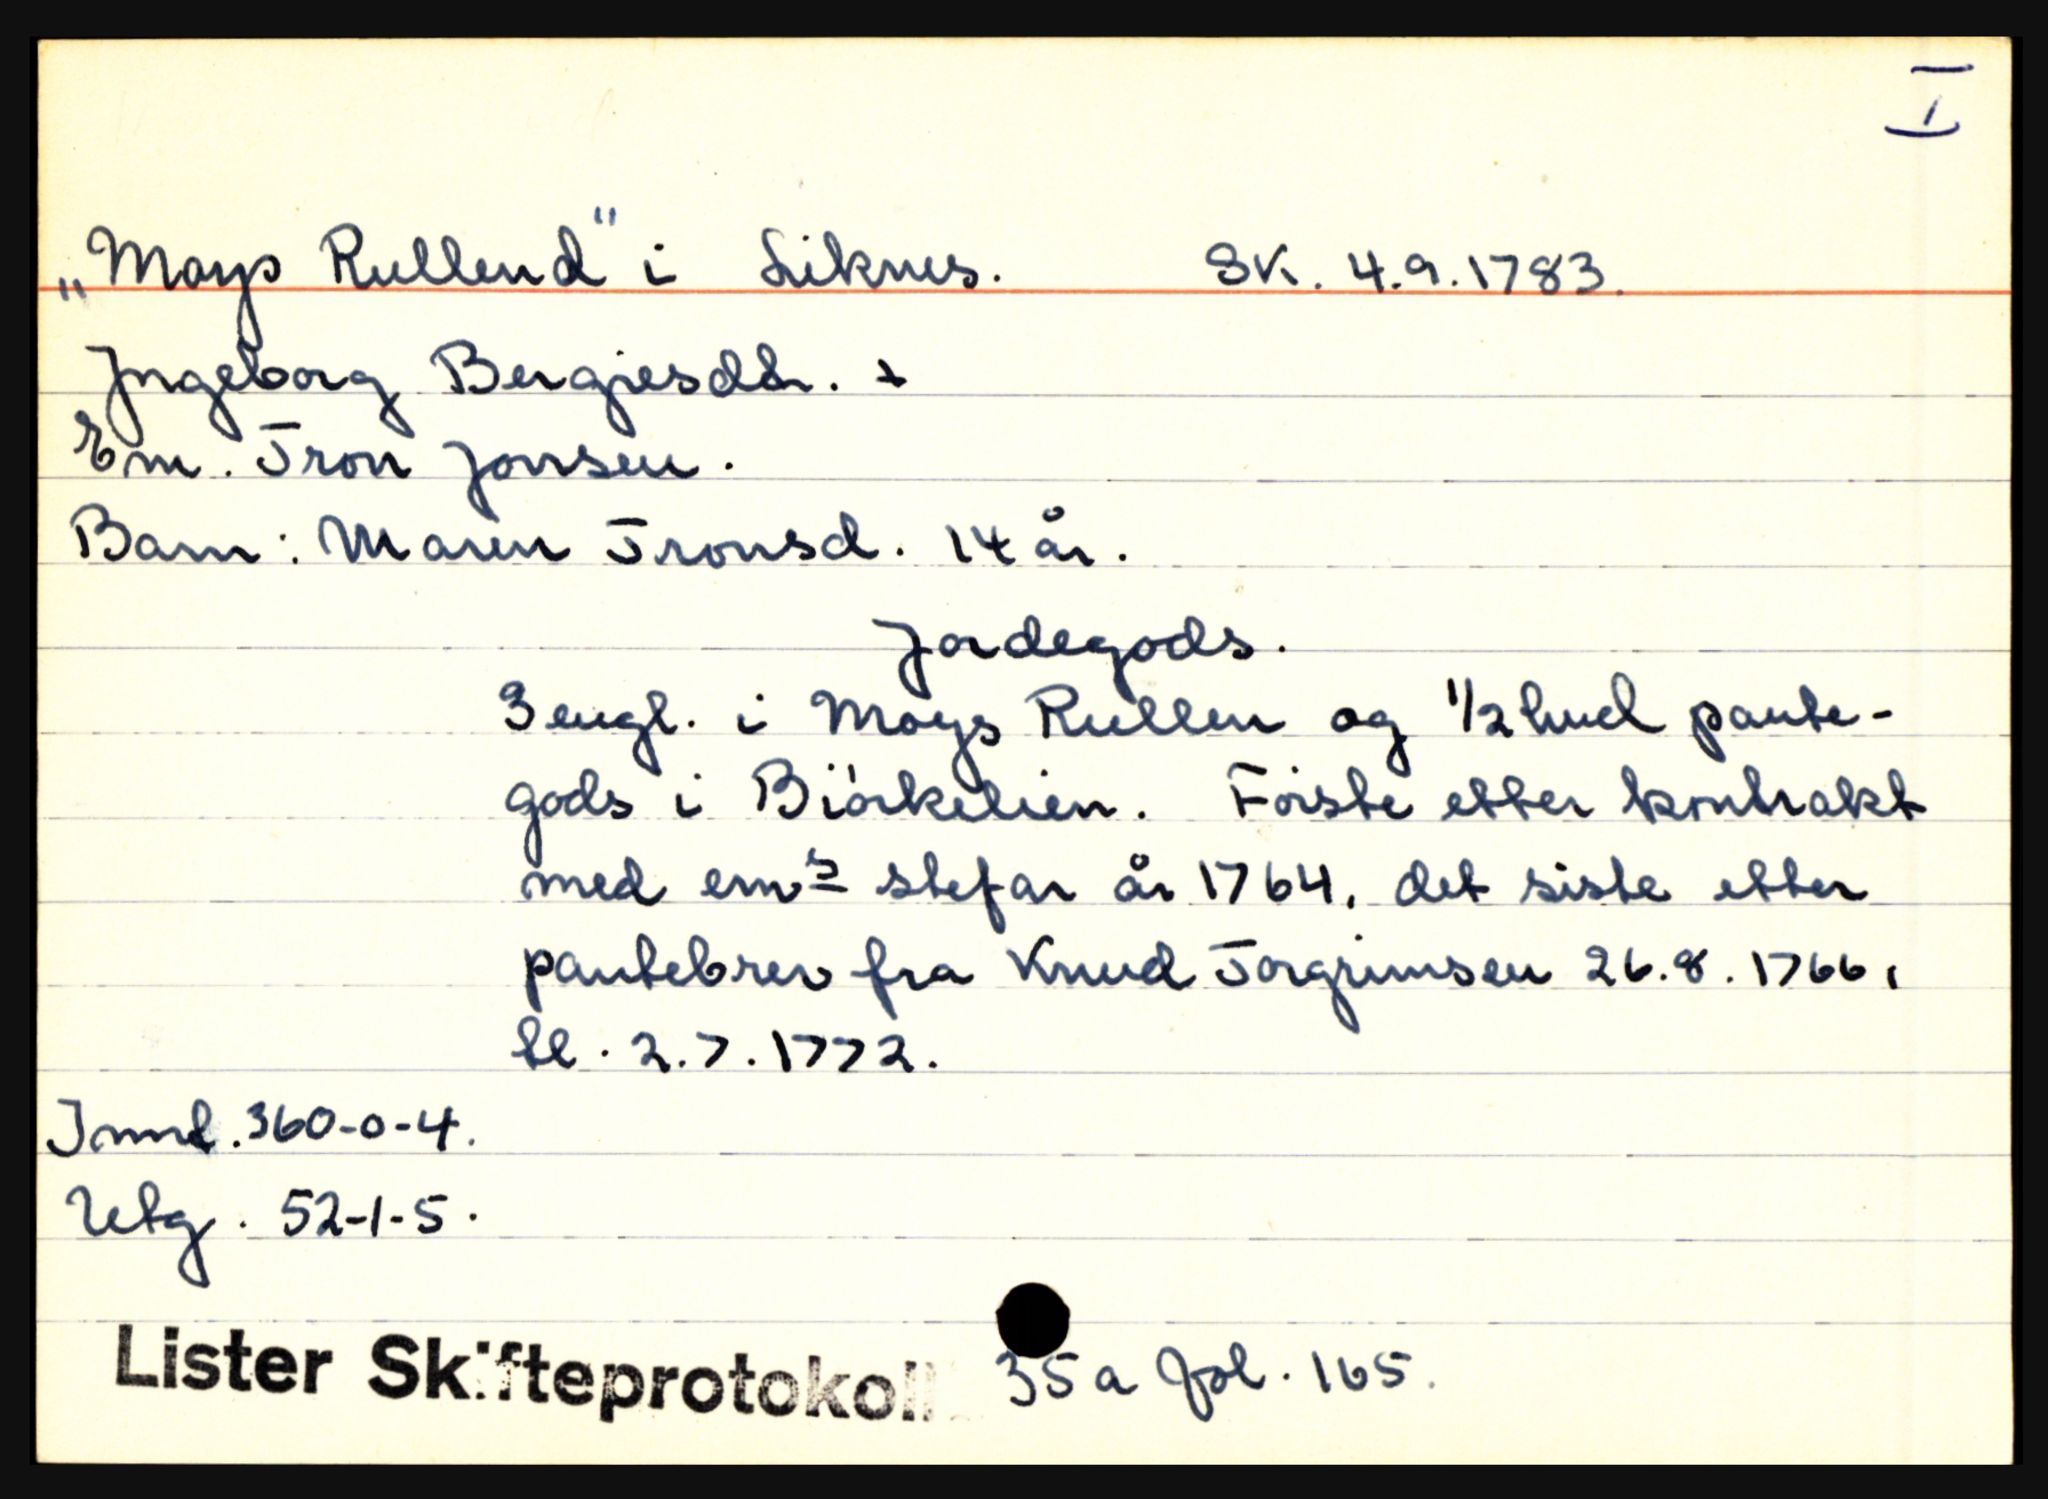 I
„Moys Rullend" i Liknes. SK. 4.9.1783.
Ingeborg Bergiesdtr. +
Em. Tron Jonsen.
Barn: Maren Tronsd. 14 år.
Jordegods.
3 engl. i Moys Rullen og 1/2 hud pante-
gods i Biörkelien. Förste etter kontrakt
med ems stefar år 1764, det siste etter
pantebrev fra Knud Torgrimsen 26.8.1766,
tl. 2.7.1772.
Innt. 360-0-4.
Utg. 52-1-5.
Lister Skifteprotokoll 35a fol. 165.